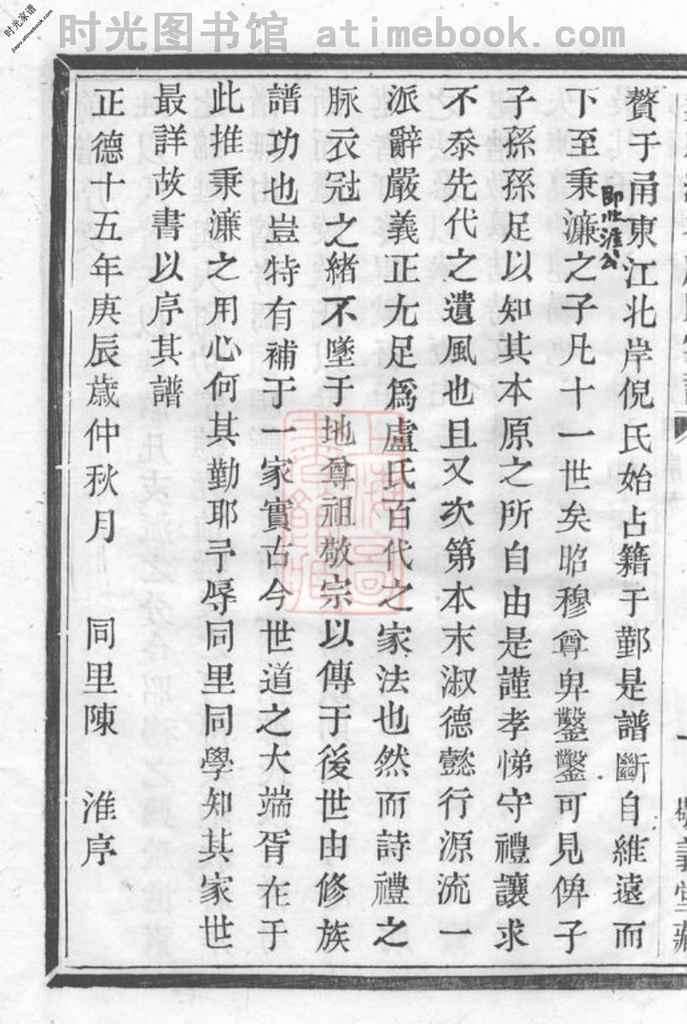 时光图书馆 atimebook.com
时光家谱
www.atimebook.com
贅于甬東江北岸倪氏始占籍于鄞是譜斷自維遠而
下至秉濂之子凡十一世矣昭穆尊卑鑿鑿可見俾子
即此淮公
子孫孫足以知其本原之所自由是謹孝悌守禮讓求
不忝先代之遺風也且又次第本末淑德懿行源流一
派辭嚴義正尤足爲盧氏百代之家法也然而詩禮之
脉衣冠之緒不墜于地尊祖敬宗以傳于後世由修族
譜功也豈特有補于一家實古今世道之大端胥在于
此推秉濂之用心何其勤耶予辱同里同學知其家世
最詳故書以序其譜
正德十五年庚辰歲仲秋月 同里陳 淮序